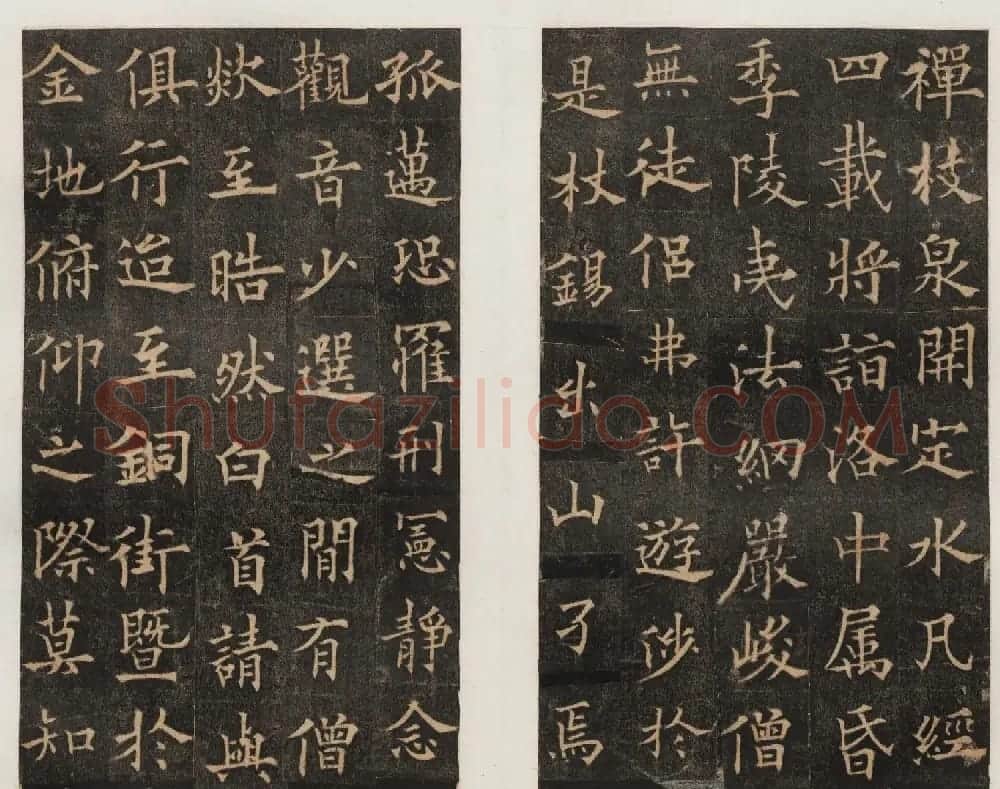 禪枝泉開定水凡經
四載將詣洛中属昏
季陵夷法網嚴峻僧
無徒侶弗許遊涉於
是杖錫出山孑焉
孤邁恐罹刑憲靜念
觀音少選之閒有僧
欻至晧然白首請與
俱行迨至銅街暨於
金地俯仰之際莫知
Shufazilido.COM